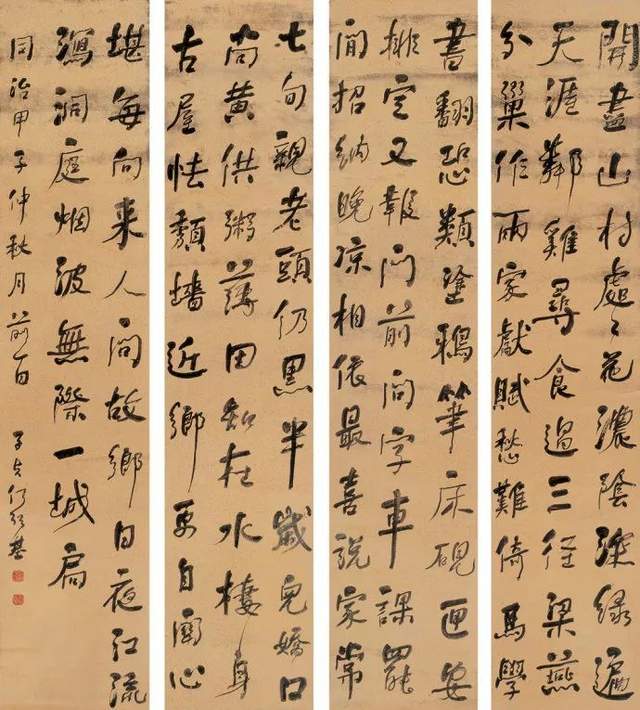 開盡山村處々花濃陰深綠遍
天涯鄰雞尋食過三徑梁燕
分巢作兩家獻賦愁難倚馬學
書翻恐類塗鴉筆床硯匣安
排定又報門前問字車課罷
閒招納晚凉相依最喜說家常
七旬親老頭仍黑半歲兒嬌口
尚黄供粥薄田知在水棲身
古屋怯頹墻近鄉更自關心
堪每向来人問故鄉日夜江流
瀉洞庭烟波無際一城扃
同治甲子仲秋月前一日 子貞何紹基